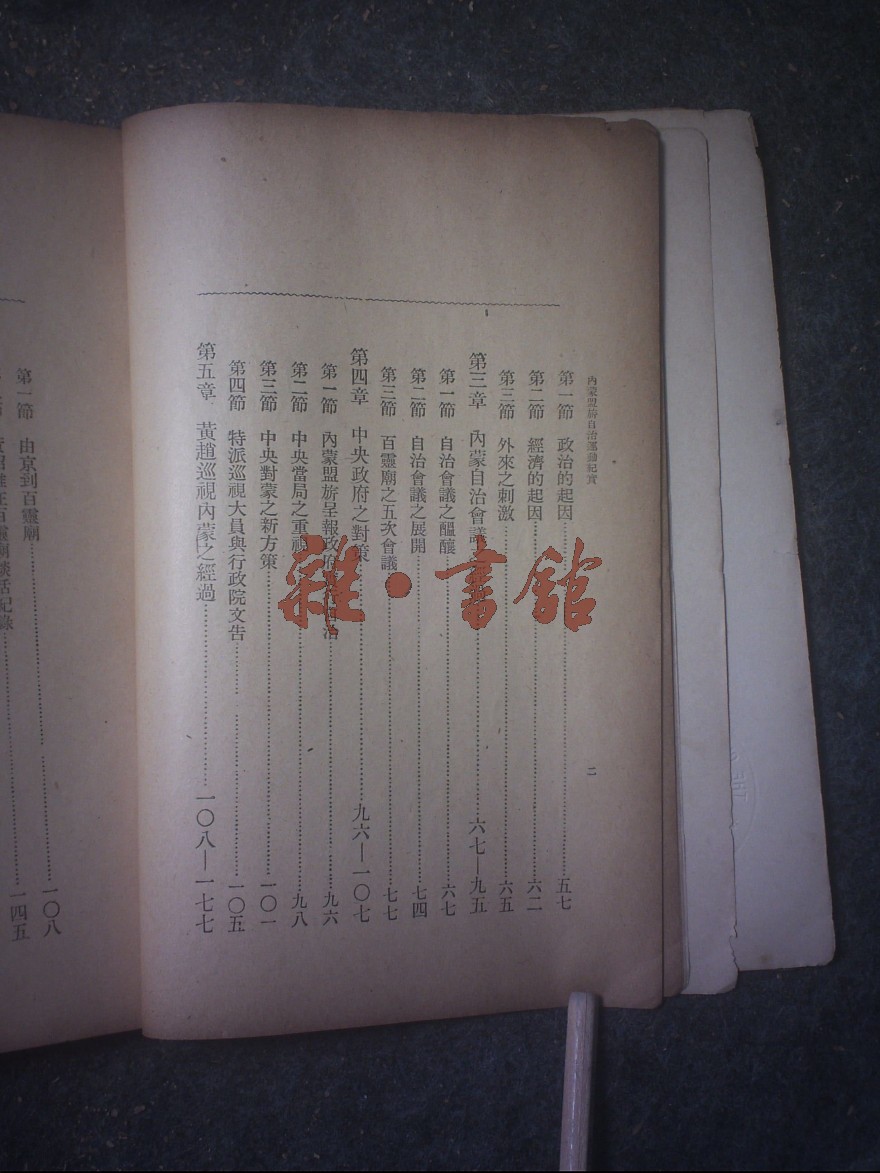 內蒙盟旂自治運動紀實
二
第一節 政治的起因 五七
第二節 經濟的起因 六二
第三節 外來之刺激 六五
第三章 內蒙自治會議 六七—九五
第一節 自治會議之醞釀 六七
第二節 自治會議之展開 七四
第三節 百靈廟之五次會議 七七
第四章 中央政府之對策 九六—一〇七
第一節 內蒙盟旂呈報政府 治 九六
第二節 中央當局之重視 九八
第三節 中央對蒙之新方策 一〇一
第四節 特派巡視大員與行政院文告 一〇五
第五章 黃趙巡視內蒙之經過 一〇八—一七七
第一節 由京到百靈廟 一〇八
百靈廟談話紀錄 一四五
雜·書館